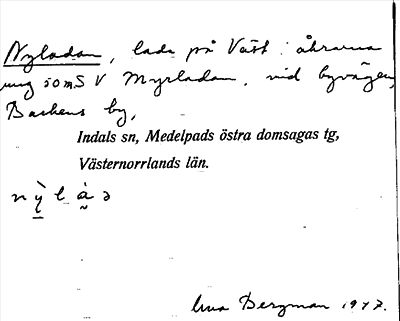 Nyladan, lada på Väst. åkrarna
ung 50 m S V Myrladan, vid byvägen,
Backens by,
Indals sn, Medelpads östra domsagas tg,
Västernorrlands län.
nỳlàə
Bergman 1947.